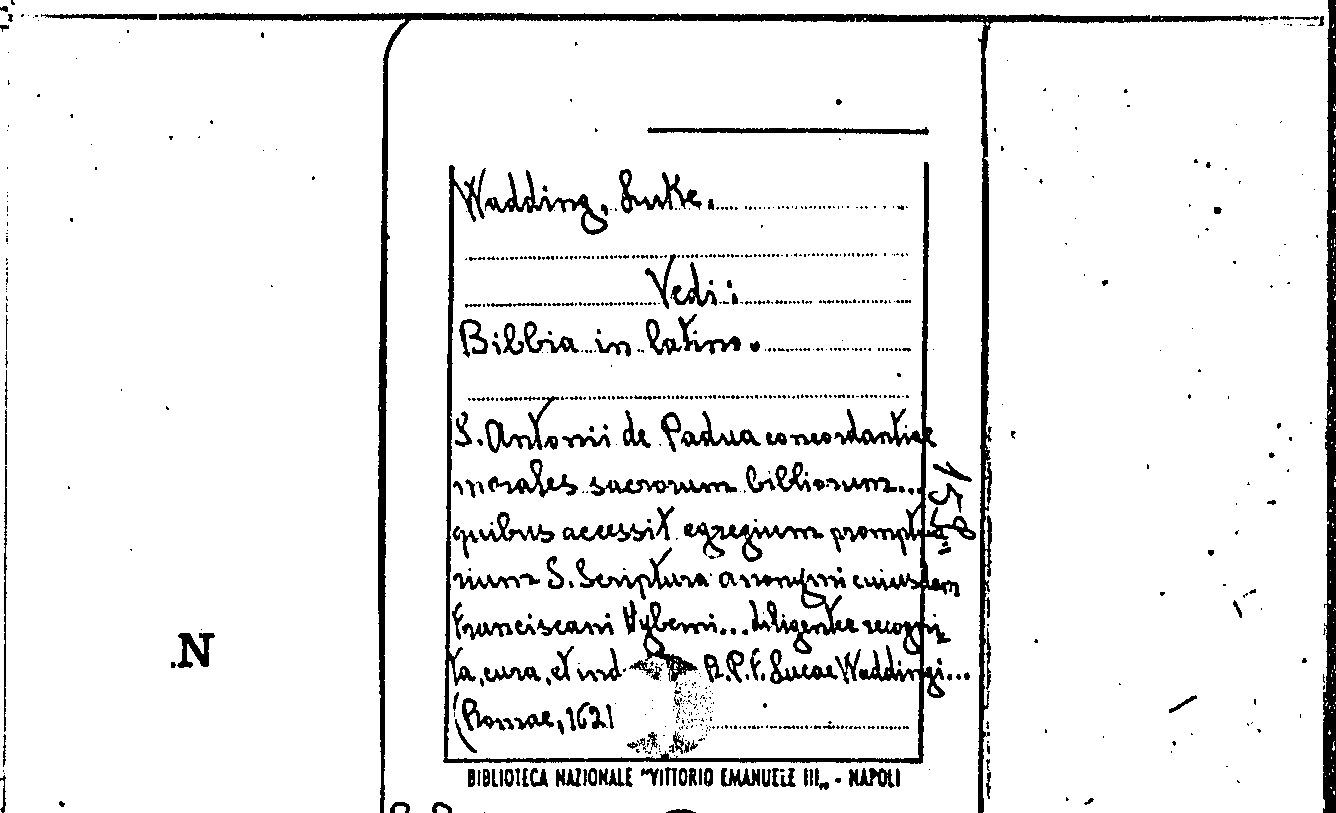 Wadding, Luke.
Vedi:
Bibbia in latino.
S. Antonii de Padua concordantiae
morales sacrorum bibliorum...
quibus accessit egregium promptua=
rium S. Scriptura anonymi cuiusdem
Franciscani Hyberni... diligenter recogni=
ta, cura, et ind R.P.F. Lucae Waddingi...
(Romae, 1621
158
.N
BIBLIOTECA NAZIONALE "VITTORIO EMANUELE III„ - NAPOLI